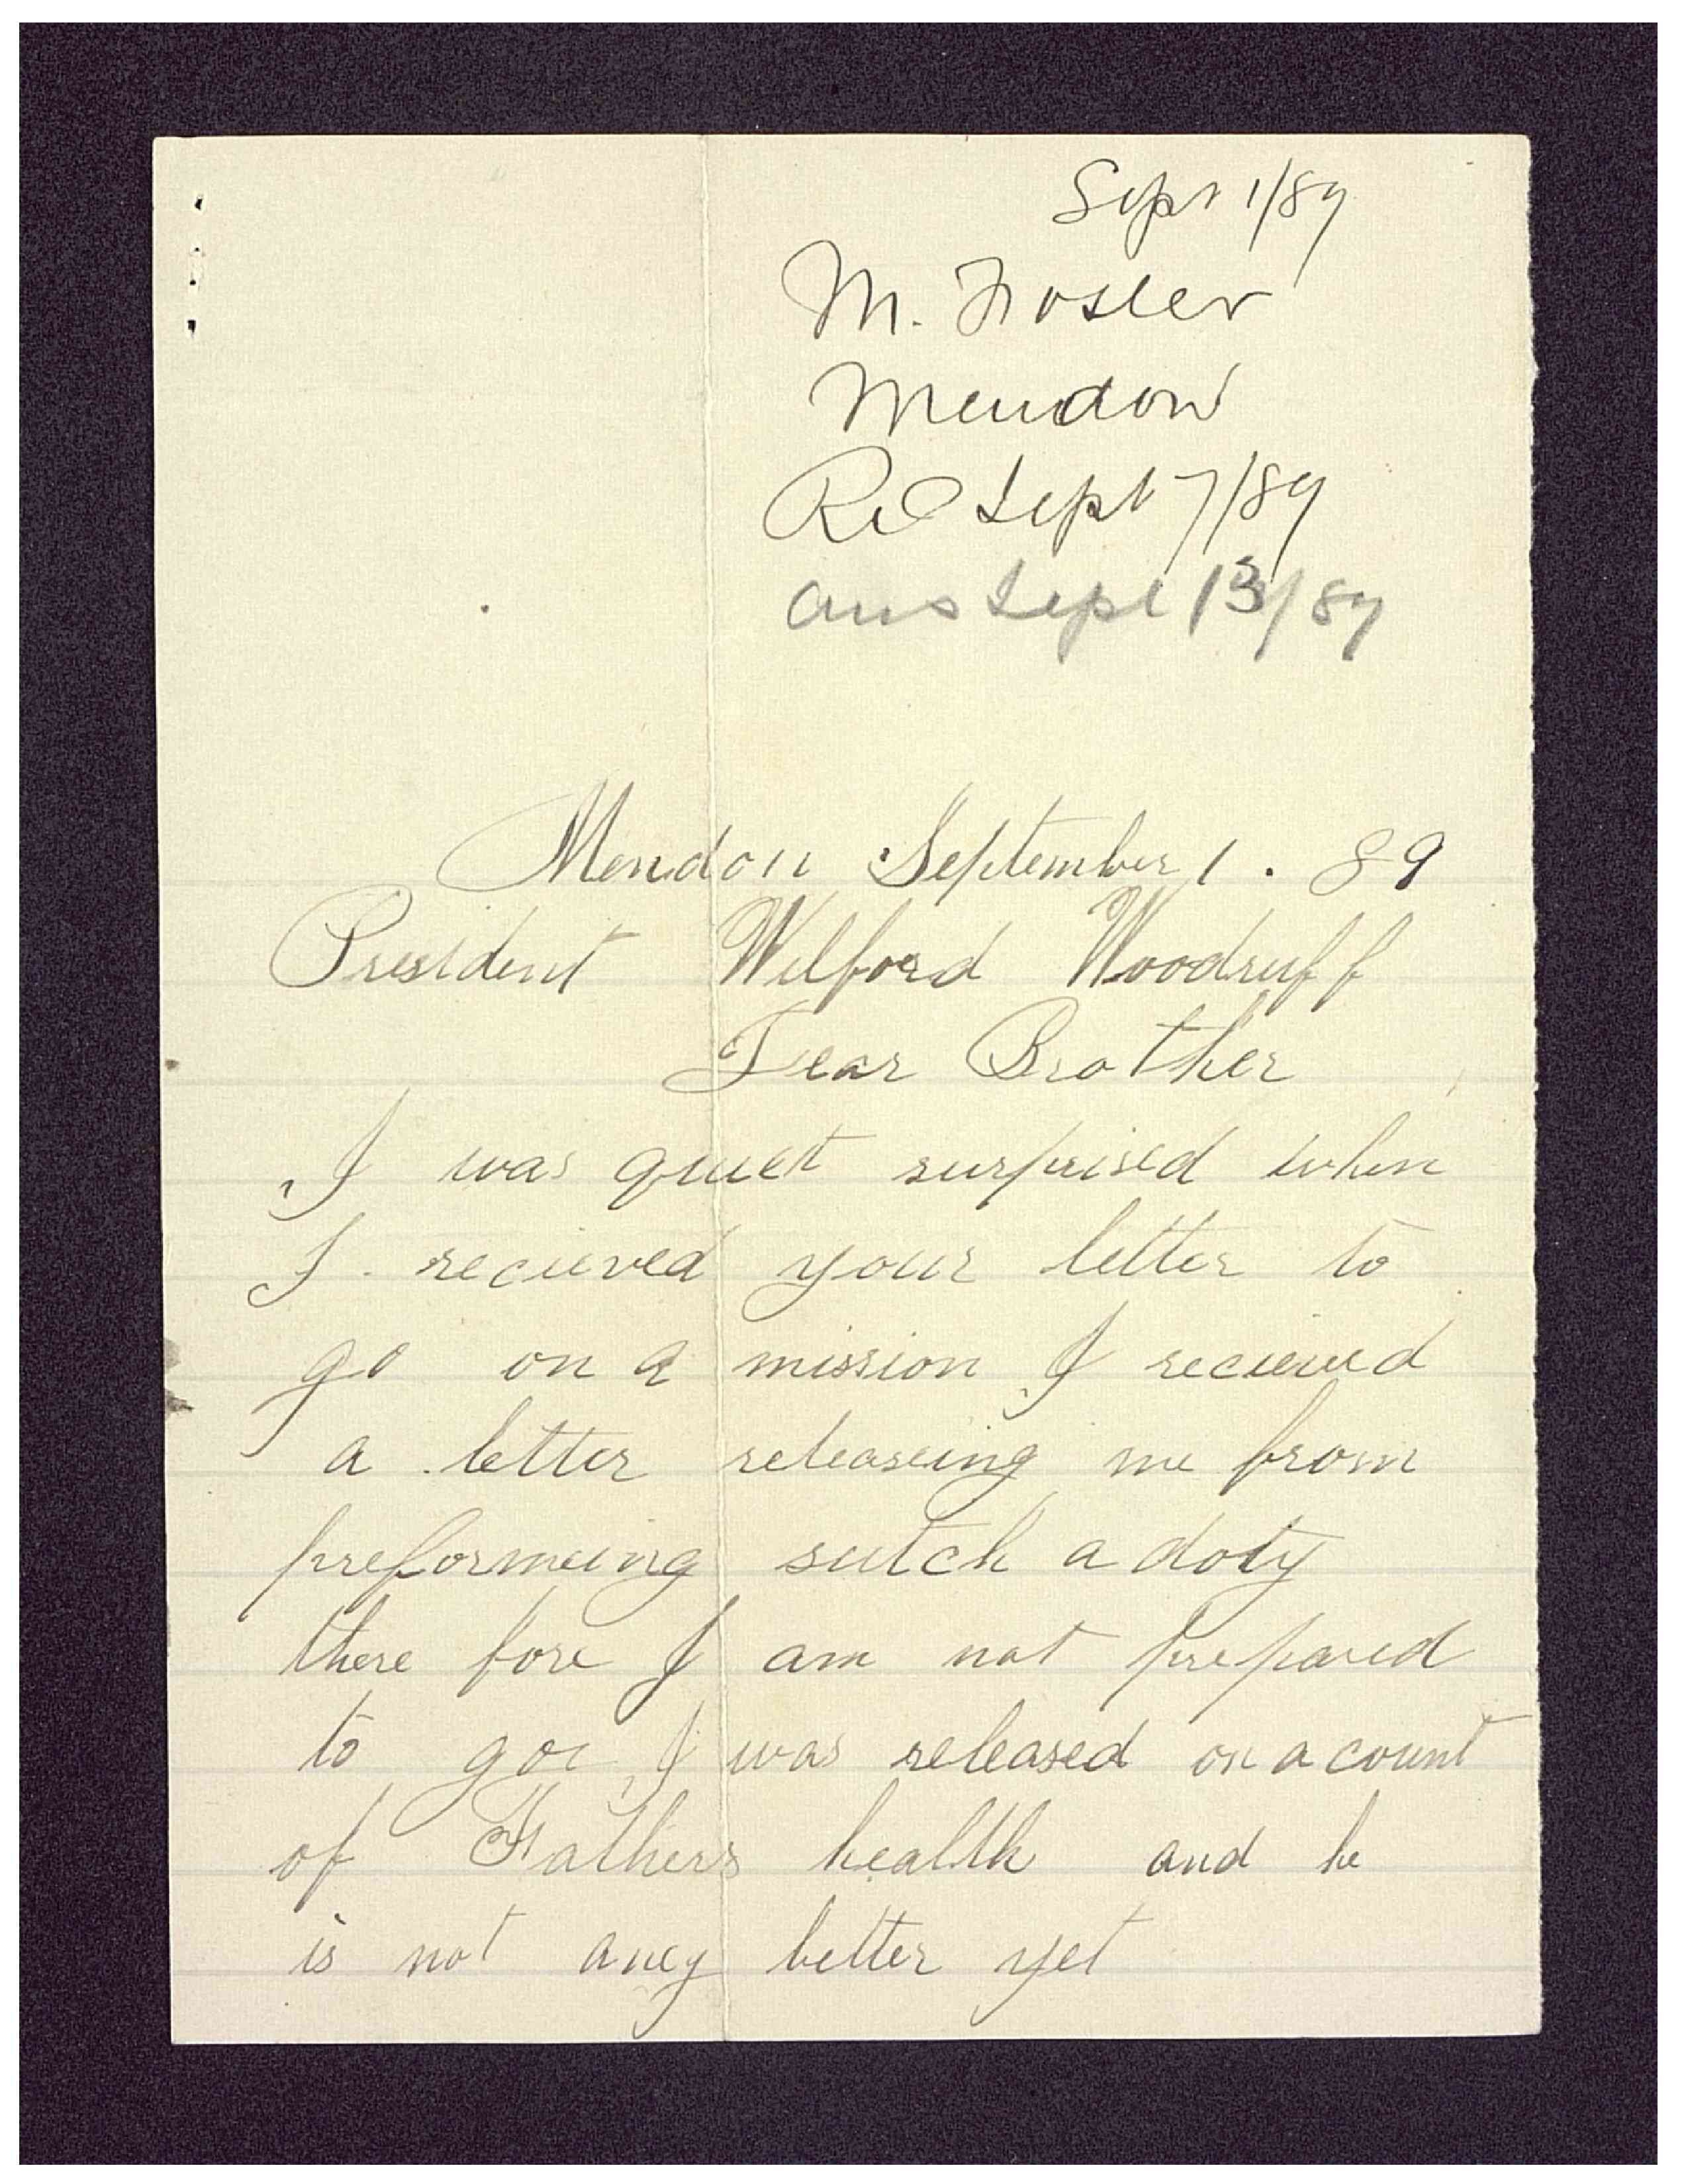 Sept 1/89
M. Foster
Mendon
Rec Sept 7/89
ans Sept 13/89
Mendon September 1. 89
President Wilford Woodruff
Dear Brother
I was quiet surprised when
I recieved your letter to
go on a mission I recieved
a letter releaseing me from
preformeing sutch a doty
there fore I am not prepared
to goe I was released on acount
of Fathers health and he
is not aney better yet